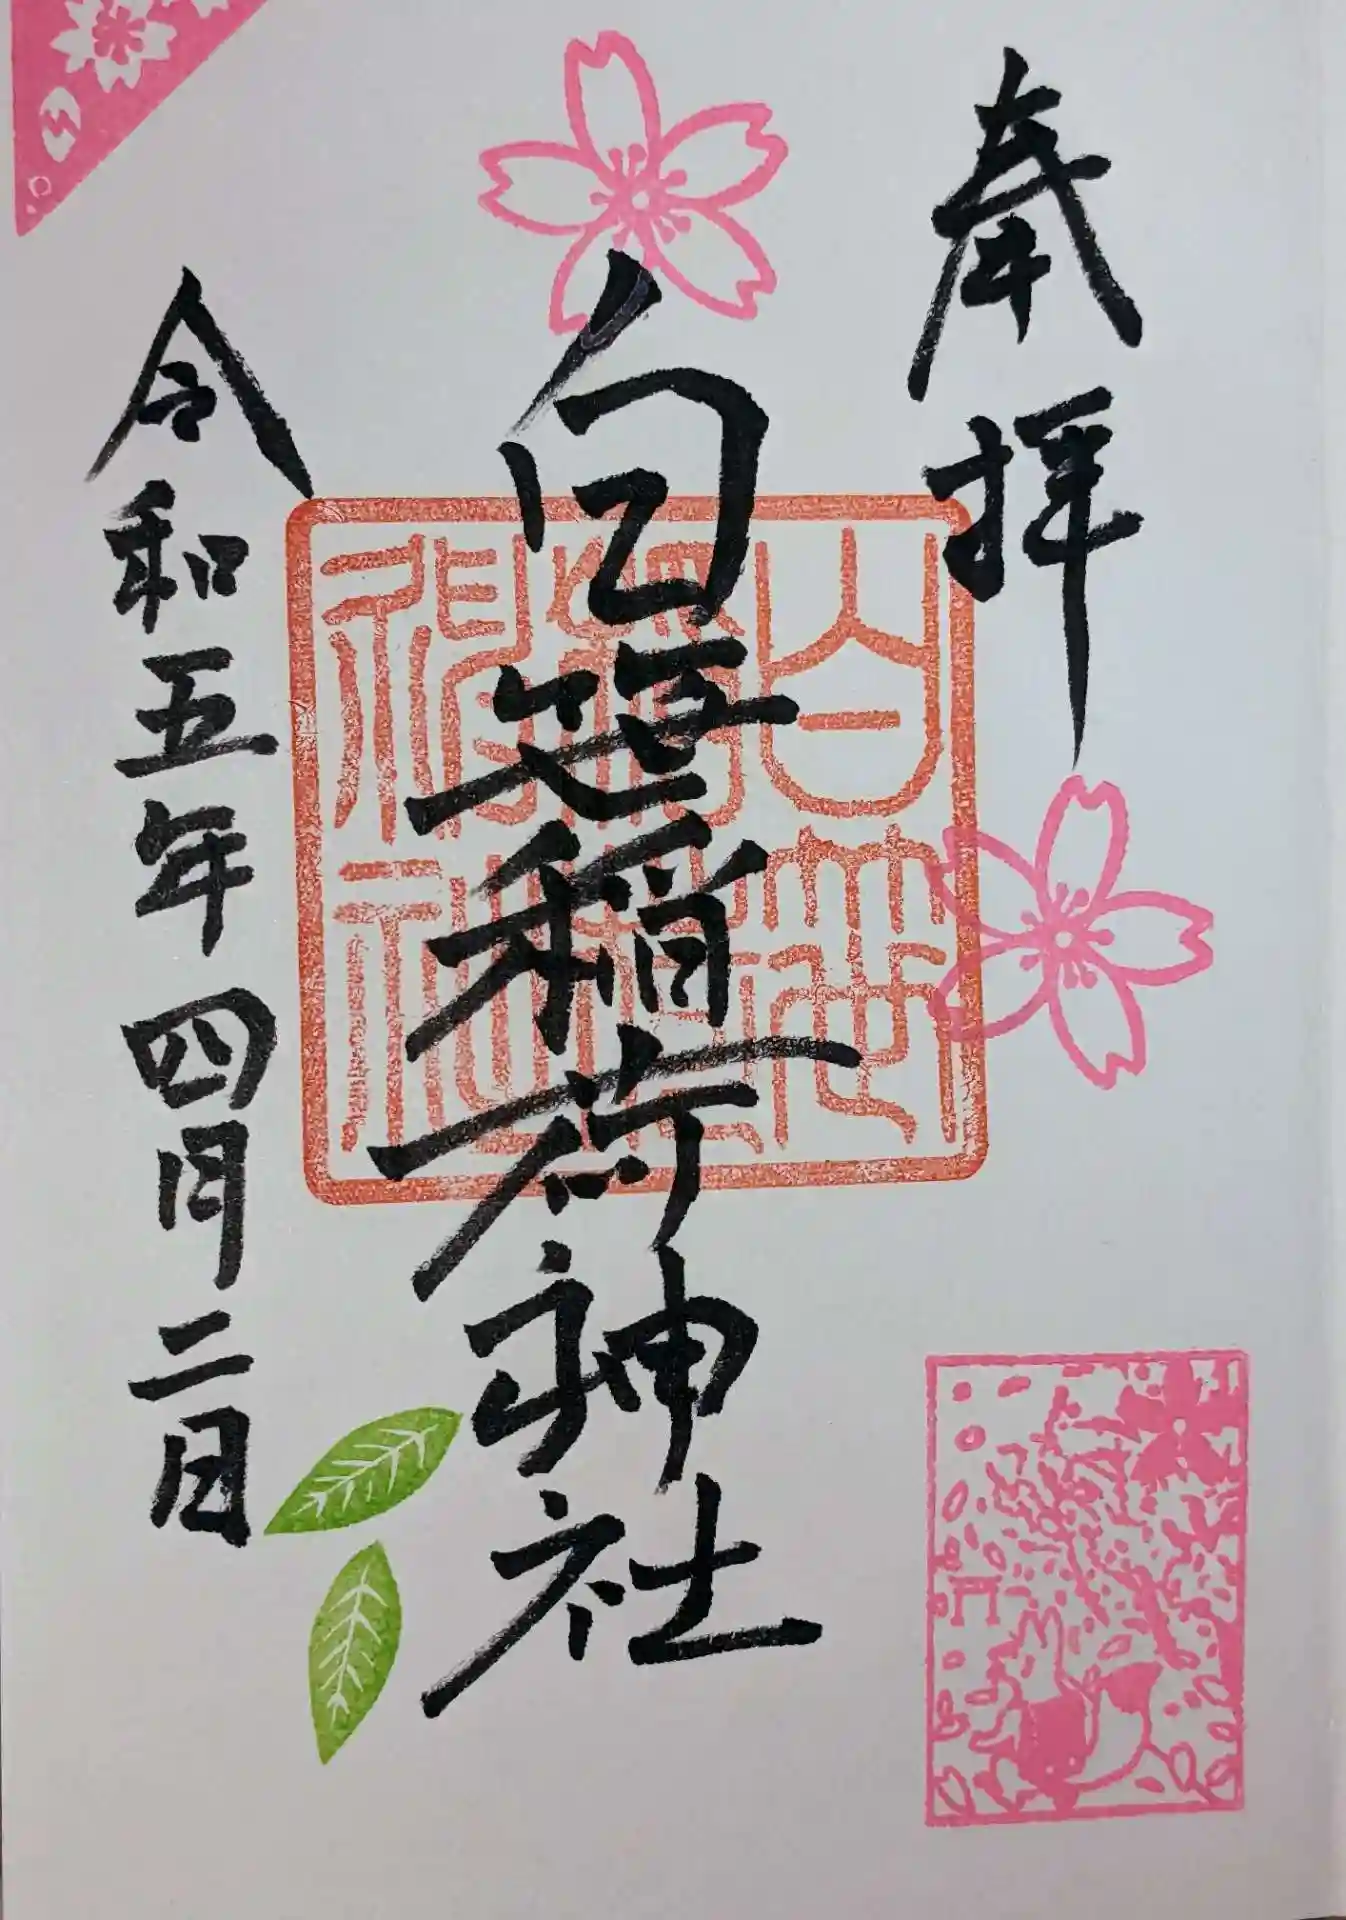 奉拝
白笹稲荷神社
白笹
稲荷
神社
令和五年四月二日